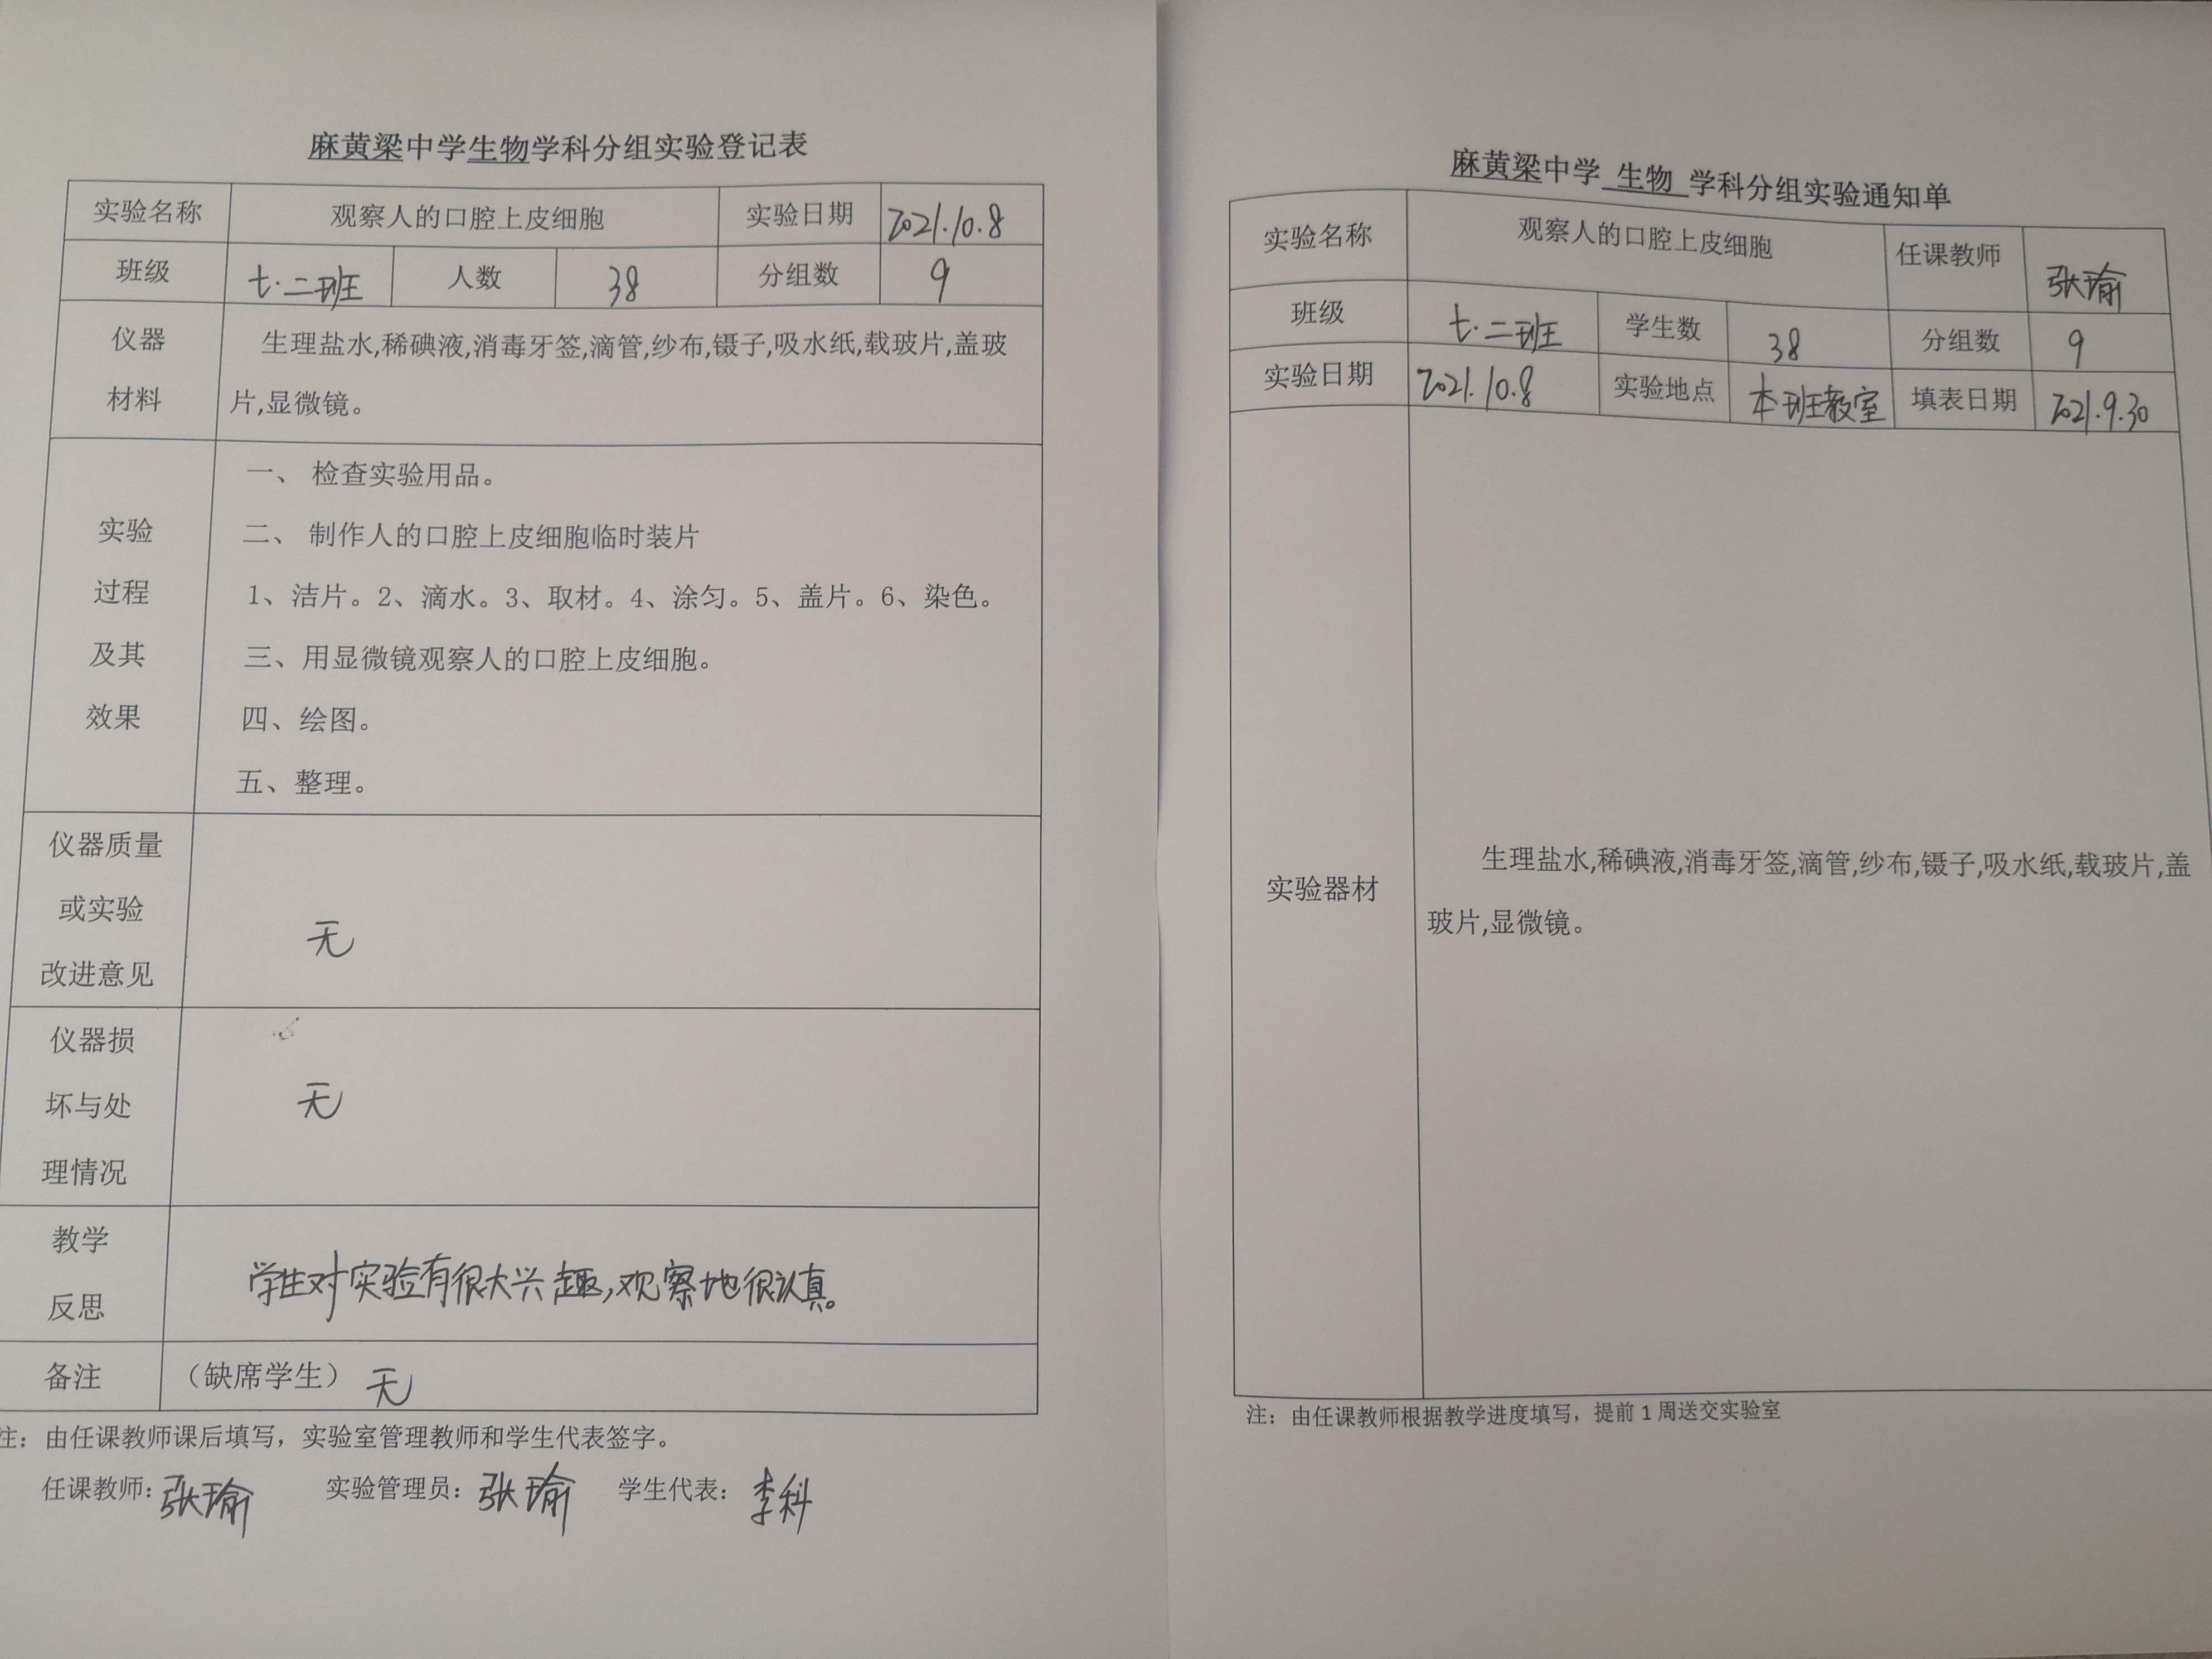 麻黄梁中学生物学科分组实验登记表
实验名称 观察人的口腔上皮细胞 实验日期 2021.10.8
班级 七.二班 人数 38 分组数 9
仪器
材料
生理盐水,稀碘液,消毒牙签,滴管,纱布,镊子,吸水纸,载玻片,盖玻
片,显微镜。
实验
过程
及其
效果
一、 检查实验用品。
二、 制作人的口腔上皮细胞临时装片
1、洁片。2、滴水。3、取材。4、涂匀。5、盖片。6、染色。
三、用显微镜观察人的口腔上皮细胞。
四、绘图。
五、整理。
仪器质量
或实验
改进意见
无
仪器损
坏与处
理情况
无
教学
反思
学生对实验有很大兴趣,观察地很认真。
备注 （缺席学生） 无
注：由任课教师课后填写，实验室管理教师和学生代表签字。
任课教师：张瑜 实验管理员：张瑜 学生代表：李科
麻黄梁中学 生物 学科分组实验通知单
实验名称 观察人的口腔上皮细胞 任课教师 张瑜
班级 七.二班 学生数 38 分组数 9
实验日期 2021.10.8 实验地点 本班教室 填表日期 2021.9.30
实验器材
生理盐水,稀碘液,消毒牙签,滴管,纱布,镊子,吸水纸,载玻片,盖
玻片,显微镜。
注：由任课教师根据教学进度填写，提前 1 周送交实验室